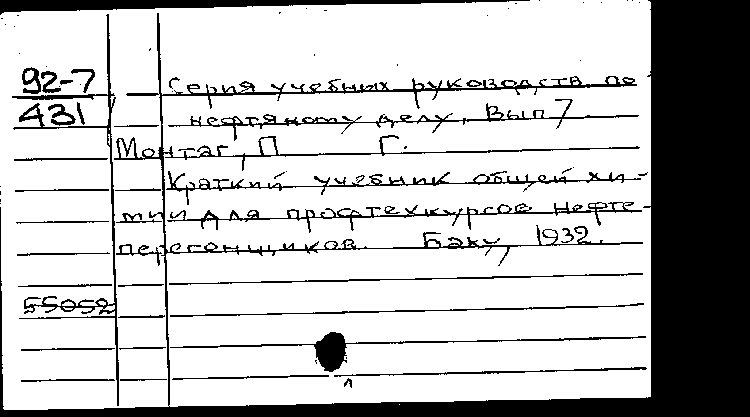 92-7
431
Серия учебных руководств по
нефтяному делу, Вып 7
Монтаг, П Г.
Краткий учебник общей хи-
мии для профтехкурсов нефте-
перегонщиков. Баку, 1932.
55052
л